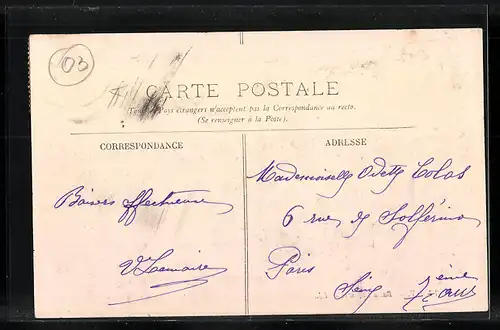 03
CARTE POSTALE
(Tous les Pays étrangers n'acceptent pas la Correspondance au recto.
(Se renseigner à la Poste).
CORRESPONDANCE
ADRESSE
Baisers affectueux
V Lemaire
Mademoiselle Odette Colas
6 rue de Solférino
Paris
Seine 7ème